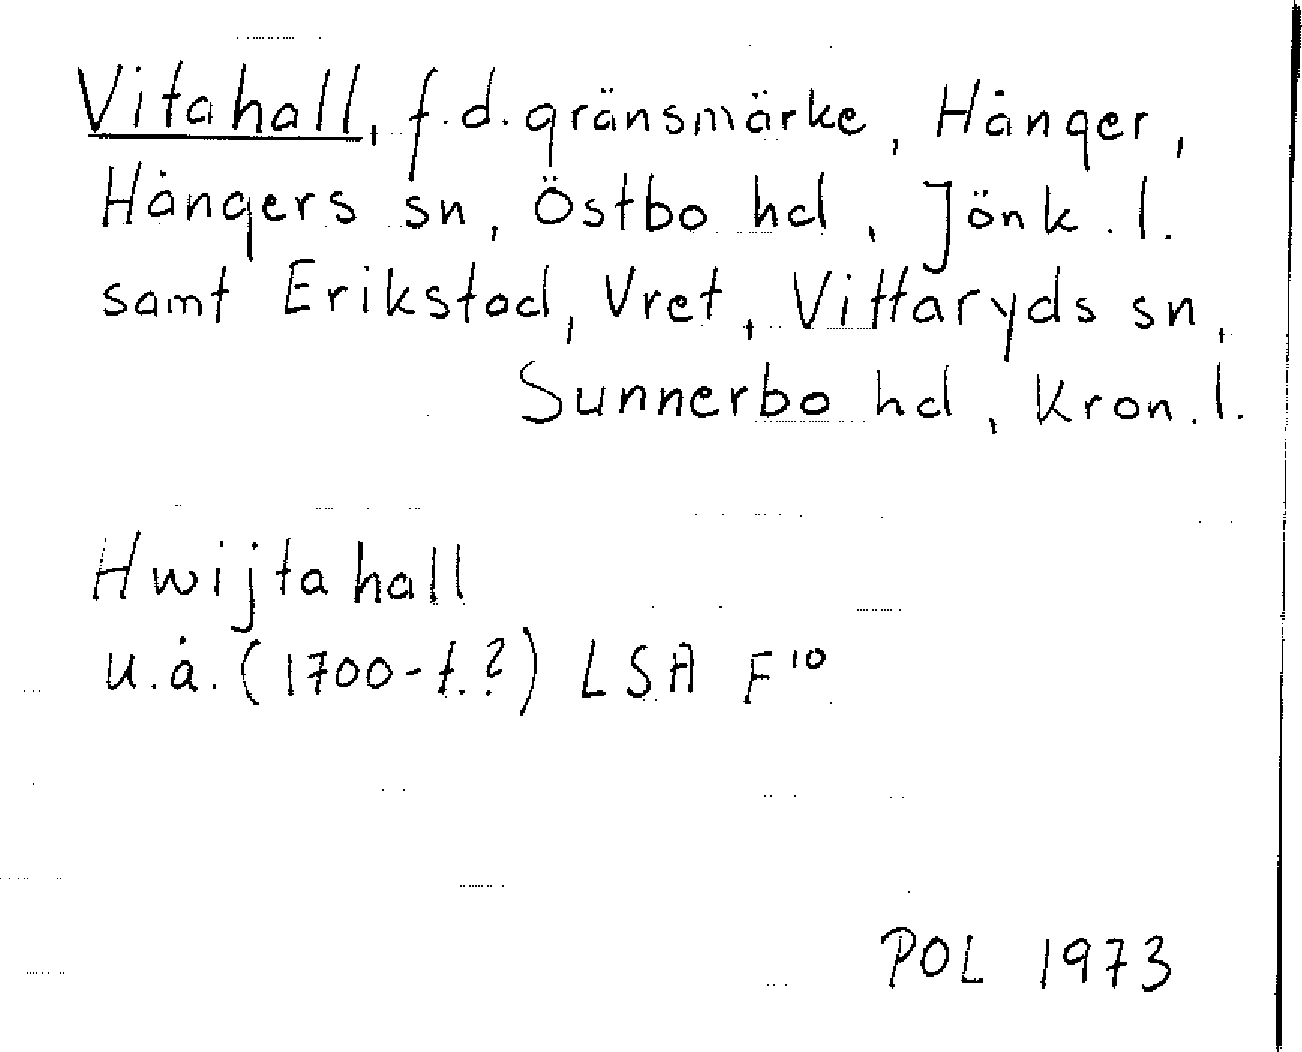 Vitahall, f.d. gränsmärke, Hånger,
Hångers sn, Östbo hd, Jönk. l.
samt Erikstad, Vret, Vittaryds sn,
Sunnerbo hd, Kron. l.
Hwijtahall
u.å. (1700-t.?) LSA F¹⁰
POL 1973